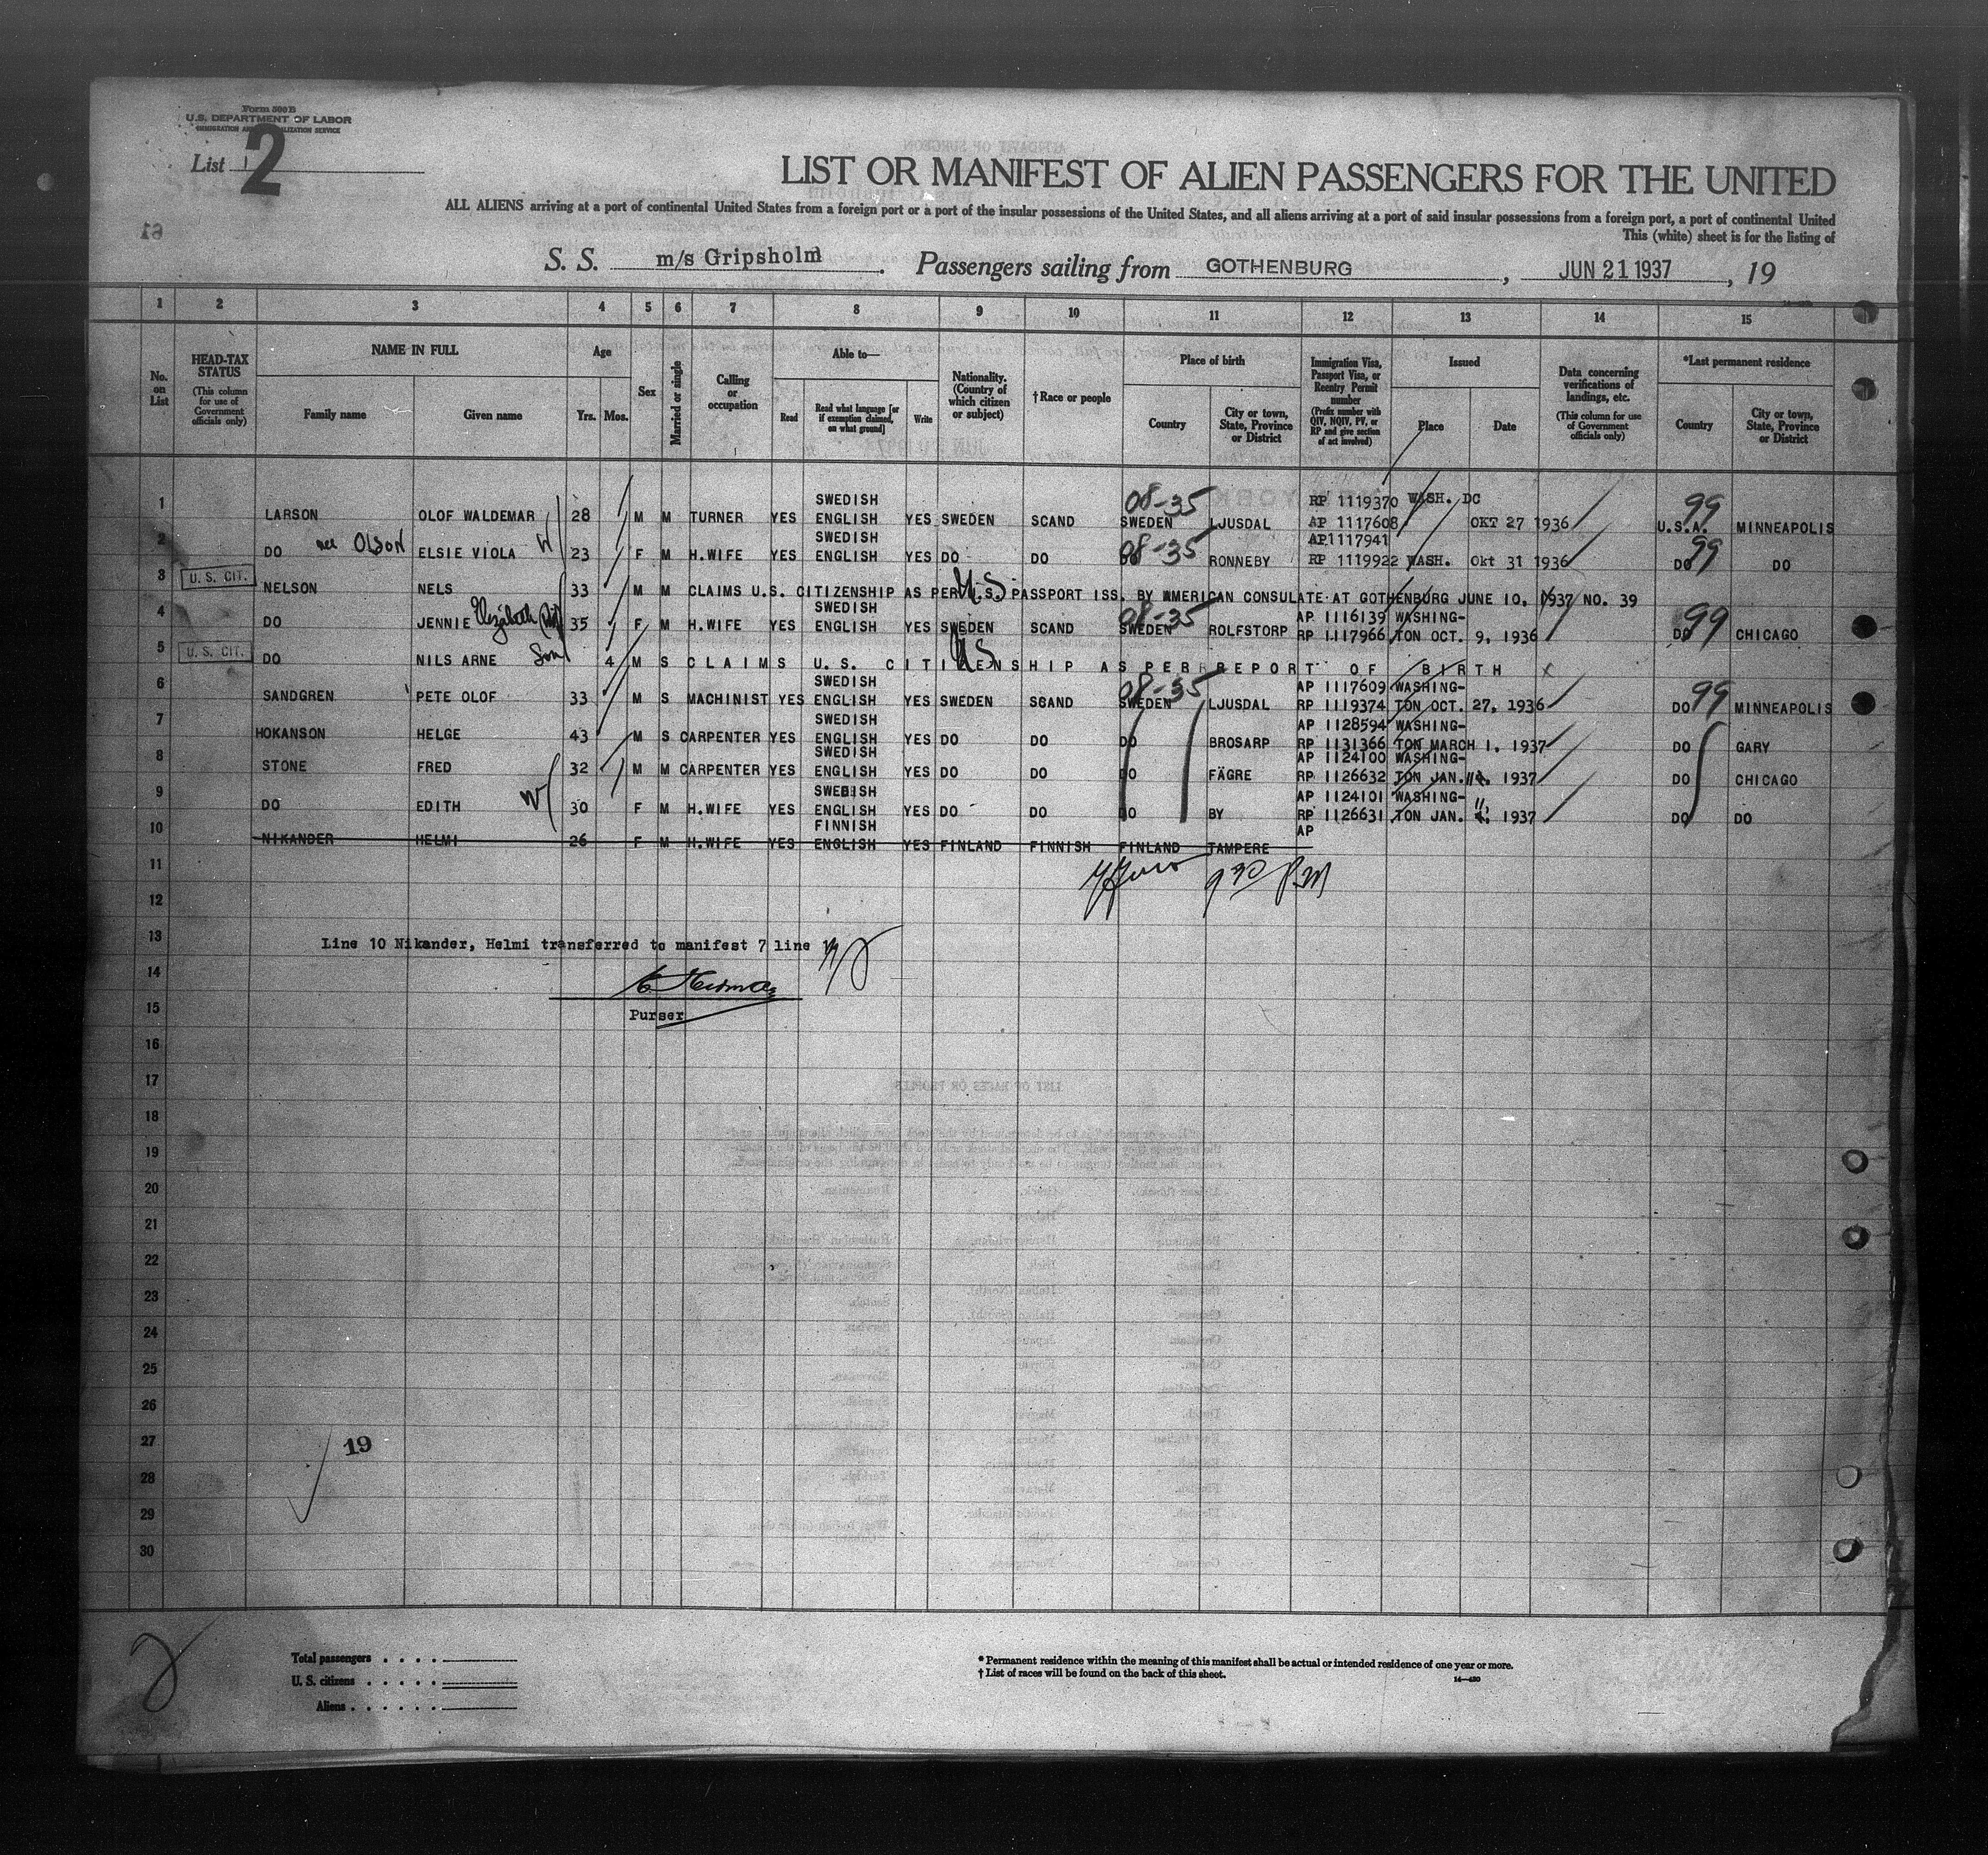 Form 500 B
U.S. DEPARTMENT OF LABOR
IMMIGRATION AND NATURALIZATION SERVICE
List 2
LIST OR MANIFEST OF ALIEN PASSENGERS FOR THE UNITED
ALL ALIENS arriving at a port of continental United States from a foreign port or a port of the insular possessions of the United States, and all aliens arriving at a port of said insular possessions from a foreign port, a port of continental United
This (white) sheet is for the listing of
S. S. m/s Gripsholm. Passengers sailing from GOTHENBURG, JUN 21 1937, 19
1 2 3 4 5 6 7 8 9 10 11 12 13 14 15
No. on List
HEAD-TAX STATUS (This column for use of Government officials only)
NAME IN FULL
Family name
Given name
Age
Yrs. Mos.
Sex
Married or single
Calling or occupation
Able to—
Read
Read what language [or if exemption claimed, on what ground]
Write
Nationality. (Country of which citizen or subject)
†Race or people
Place of birth
Country
City or town, State, Province or District
Immigration Visa, Passport Visa, or Reentry Permit number (Prefix number with QIV, NQIV, PV, or RP and give section of act involved)
Issued
Place
Date
Data concerning verifications of landings, etc. (This column for use of Government officials only)
*Last permanent residence
Country
City or town, State, Province or District
1 LARSON OLOF WALDEMAR 28 M M TURNER YES SWEDISH ENGLISH YES SWEDEN SCAND 08-35 SWEDEN LJUSDAL RP 1119370 AP 1117608 WASH. DC OKT 27 1936 99 U.S.A. MINNEAPOLIS
2 DO nee Olson ELSIE VIOLA W 23 F M H.WIFE YES SWEDISH ENGLISH YES DO DO 08-35 DO RONNEBY AP1117941 RP 1119922 WASH. Okt 31 1936 DO 99 DO
3 U. S. CIT. NELSON NELS 33 M M CLAIMS U.S. CITIZENSHIP AS PER U.S. PASSPORT ISS. BY AMERICAN CONSULATE AT GOTHENBURG JUNE 10, 1937 NO. 39 U.S.
4 DO JENNIE Elizabeth 35 F M H.WIFE YES SWEDISH ENGLISH YES SWEDEN SCAND 08-35 SWEDEN ROLFSTORP AP 1116139 RP 1117966 WASHINGTON OCT. 9, 1936 DO 99 CHICAGO
5 U. S. CIT. DO NILS ARNE Son 4 M S CLAIMS U.S. CITIZENSHIP AS PER REPORT OF BIRTH X US
6 SANDGREN PETE OLOF 33 M S MACHINIST YES SWEDISH ENGLISH YES SWEDEN SCAND 08-35 SWEDEN LJUSDAL AP 1117609 RP 1119374 WASHINGTON OCT. 27, 1936 DO 99 MINNEAPOLIS
7 HOKANSON HELGE 43 M S CARPENTER YES SWEDISH ENGLISH YES DO DO DO BROSARP AP 1128594 RP 1131366 WASHINGTON MARCH 1, 1937 DO GARY
8 STONE FRED 32 M M CARPENTER YES SWEDISH ENGLISH YES DO DO DO FÄGRE AP 1124100 RP 1126632 WASHINGTON JAN. 11, 1937 DO CHICAGO
9 DO EDITH W 30 F M H.WIFE YES SWEDISH ENGLISH YES DO DO DO BY AP 1124101 RP 1126631 WASHINGTON JAN. 11, 1937 DO DO
10 NIKANDER HELMI 26 F M H.WIFE YES FINNISH ENGLISH YES FINLAND FINNISH FINLAND TAMPERE AP
11
9 30 P.M
12
13 Line 10 Nikander, Helmi transferred to manifest 7 line
14
Purser
15
16
17
18
19
20
21
22
23
24
25
26
27
19
28
29
30
2
Total passengers . . . .
U. S. citizens . . . . .
Aliens . . . . . .
* Permanent residence within the meaning of this manifest shall be actual or intended residence of one year or more.
† List of races will be found on the back of this sheet.
14—430